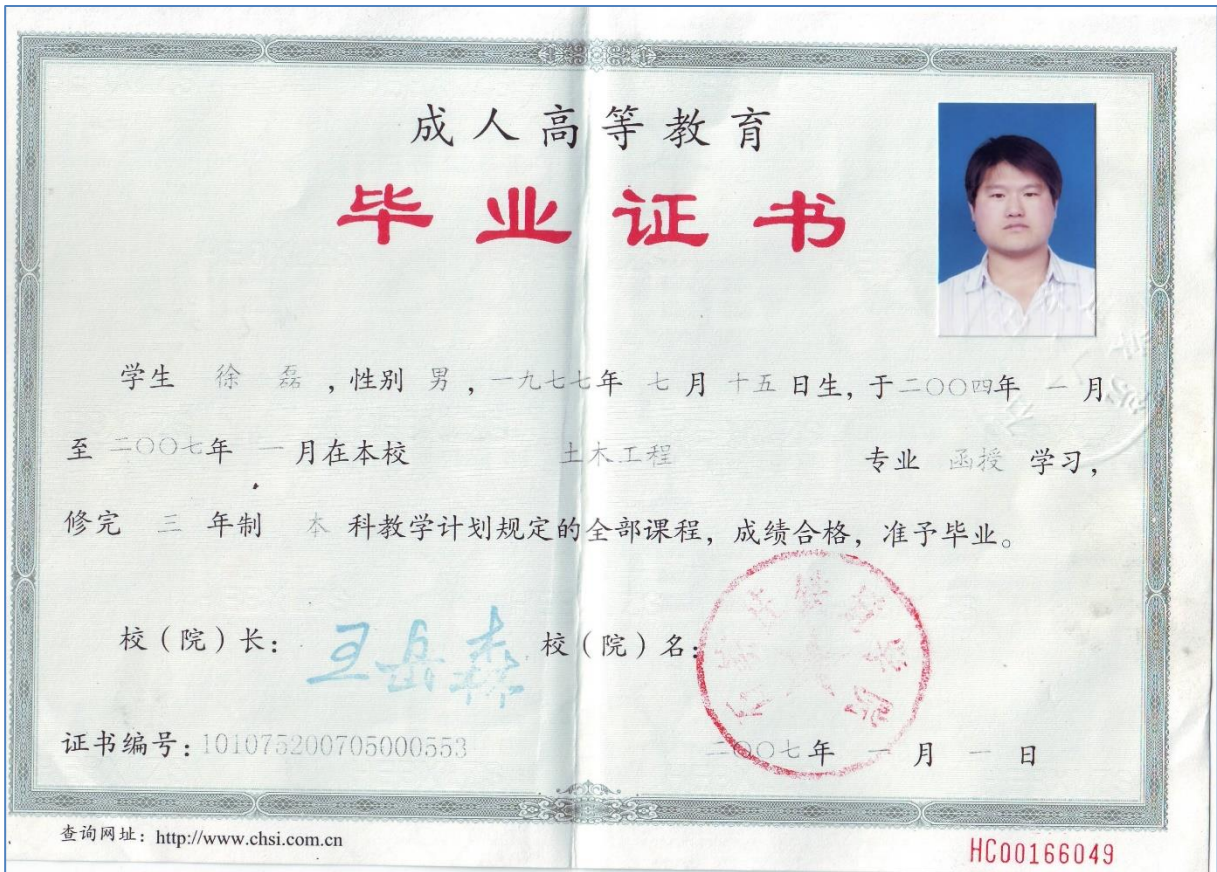 成人高等教育
毕业证书
学生 徐 磊 ，性别 男 ，一九七七年 七 月 十五 日生，于二〇〇四年 一 月
至 二〇〇七年 一 月在本校 土木工程 专业 函授 学习，
修完 三 年制 本 科教学计划规定的全部课程，成绩合格，准予毕业。
校（院）长： 王岳森 校（院）名：
证书编号：101075200705000553 二〇〇七年 一 月 一 日
查询网址：http://www.chsi.com.cn
HC00166049